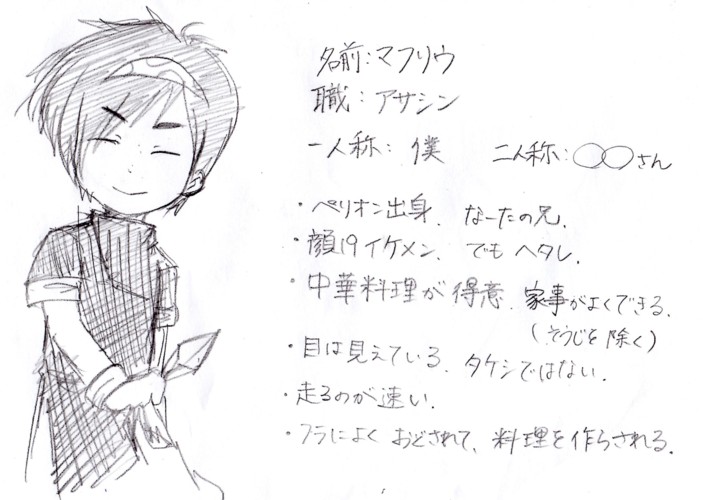 名前:マフリウ
職:アサシン
一人称:僕　二人称:○○さん
・ペリオン出身、なーたの兄.
・顔はイケメン、でもヘタレ.
・中華料理が得意.家事がよくできる.
(そうじを除く)
・目は見えている、タケシではない.
・走るのが速い.
・フラによくおどされて、料理を作らされる.